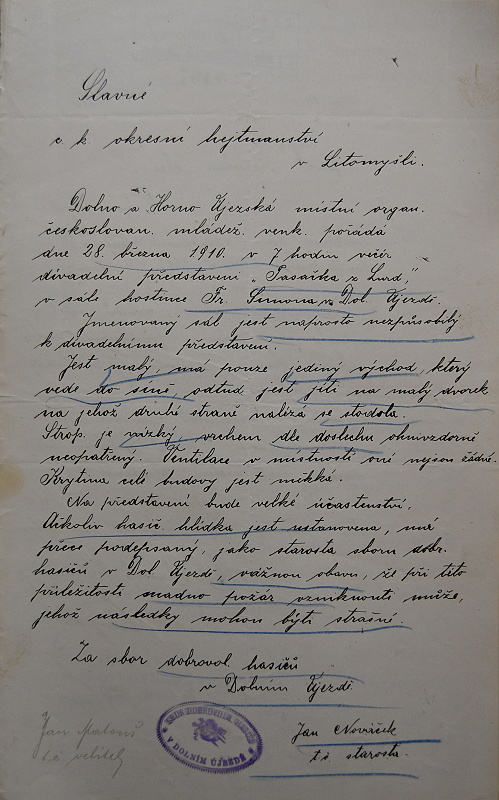 Slavné
c. k. okresní hejtmanství
v Litomyšli.
Dolno a Horno Újezská místní organ.
českoslovan. mládež. venk. pořádá
dne 28. března 1910. v 7 hodin večer
divadelní představení „Pasačka z Lurd",
v sále hostince Fr. Šimona v Dol. Újezdě.
Jmenovaný sál jest naprosto nezpůsobilý
k divadelnímu představení.
Jest malý, má pouze jediný východ, který
vede do síně, odtud jest jíti na malý dvorek
na jehož druhé straně nalézá se stodola.
Strop. je nízký, vrchem dle doslechu ohnivzdorně
neopatřený. Ventilace v místnosti oné nejsou žádné.
Krytina celé budovy jest měkká.
Na představení bude velké účastenství.
Ačkoliv hasič. hlídka jest ustanovena, má
přece podepsaný, jako starosta sboru dobr.
hasičů v Dol. Újezdě, vážnou obavu, že při této
příležitosti snadno požár vzniknouti může,
jehož následky mohou býti strašné.
Za sbor dobrovol. hasičů
v Dolním Újezdě.
SBOR DOBROVOLN. HASIČŮ
V DOLNÍM ÚJEZDĚ
Jan Nováček
t. č. starosta.
Jan Matouš
t. č. velitel